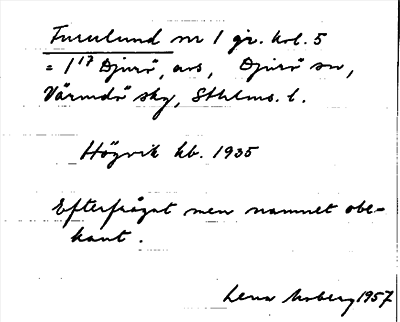 Furulund nr 1 gr. kol. 5
= 1¹⁷ Djurö, avs, Djurö sn,
Värmdö skg, Sthlms. l.
Högvik kb. 1935
Efterfrågat men namnet obe-
kant.
Lena Moberg 1957